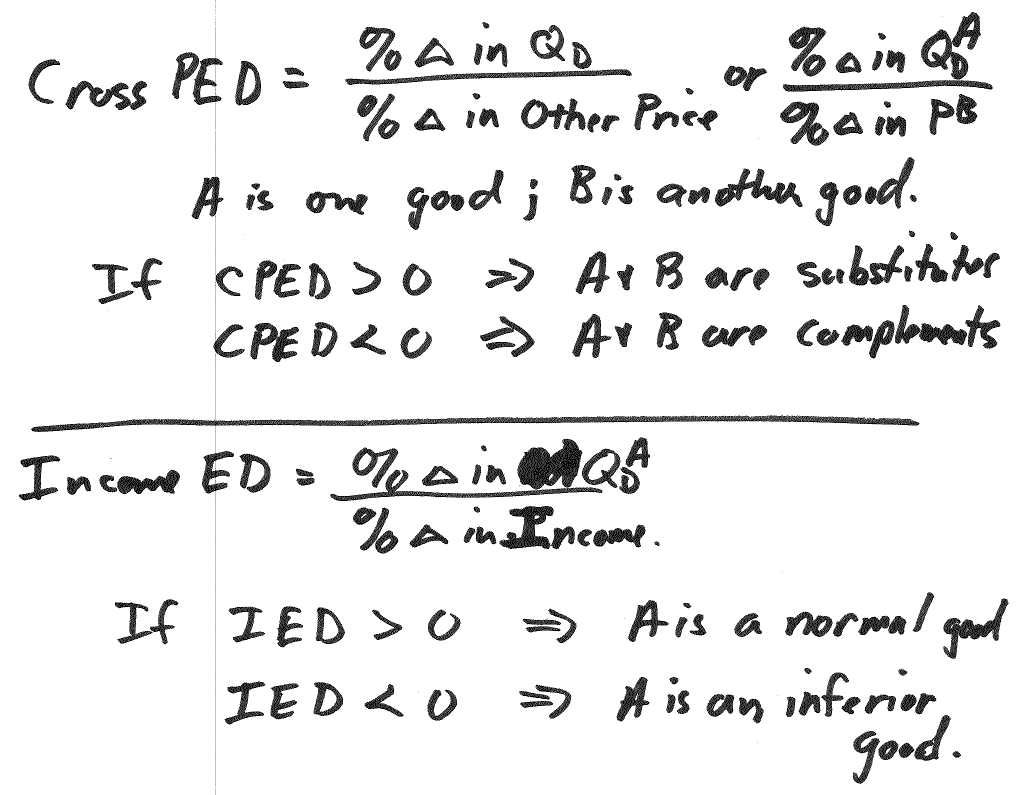 Cross PED = % Δ in Q_D / % Δ in Other Price or % Δ in Q_D^A / % Δ in P^B
A is one good; B is another good.
If CPED > 0 ⇒ A & B are substitutes
CPED < 0 ⇒ A & B are complements
Income ED = % Δ in Q_D^A / % Δ in Income.
If IED > 0 ⇒ A is a normal good
IED < 0 ⇒ A is an inferior
good.